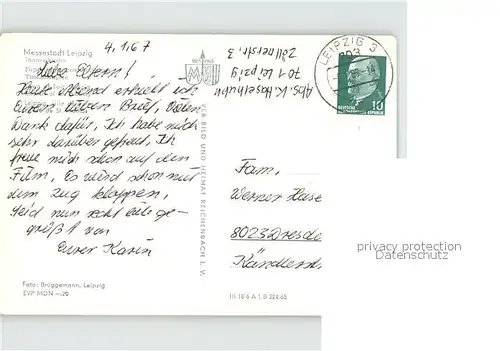 Messestadt Leipzig
4.1.67
Liebe Eltern!
Heute Abend erhielt ich
Euren lieben Brief, vielen
Dank dafür, Ich habe mich
sehr darüber gefreut, Ich
freue mich schon auf den
Film, Es wird schon mit
dem Zug klappen,
Seid nun recht lieb ge-
grüßt von
Eurer Karin
Foto: Brüggemann, Leipzig
EVP MDN -.20
VEB BILD UND HEIMAT REICHENBACH I. V.
Abs. K.
701 Leipzig
Zöllnerstr. 3
LEIPZIG 3
DEUTSCHE
DEMOKRATISCHE REPUBLIK
10
Fam.
Werner Hase
8023 Dresde
Kändlerst
III 18 6 A 1 B 324/65
privacy protection
Datenschutz